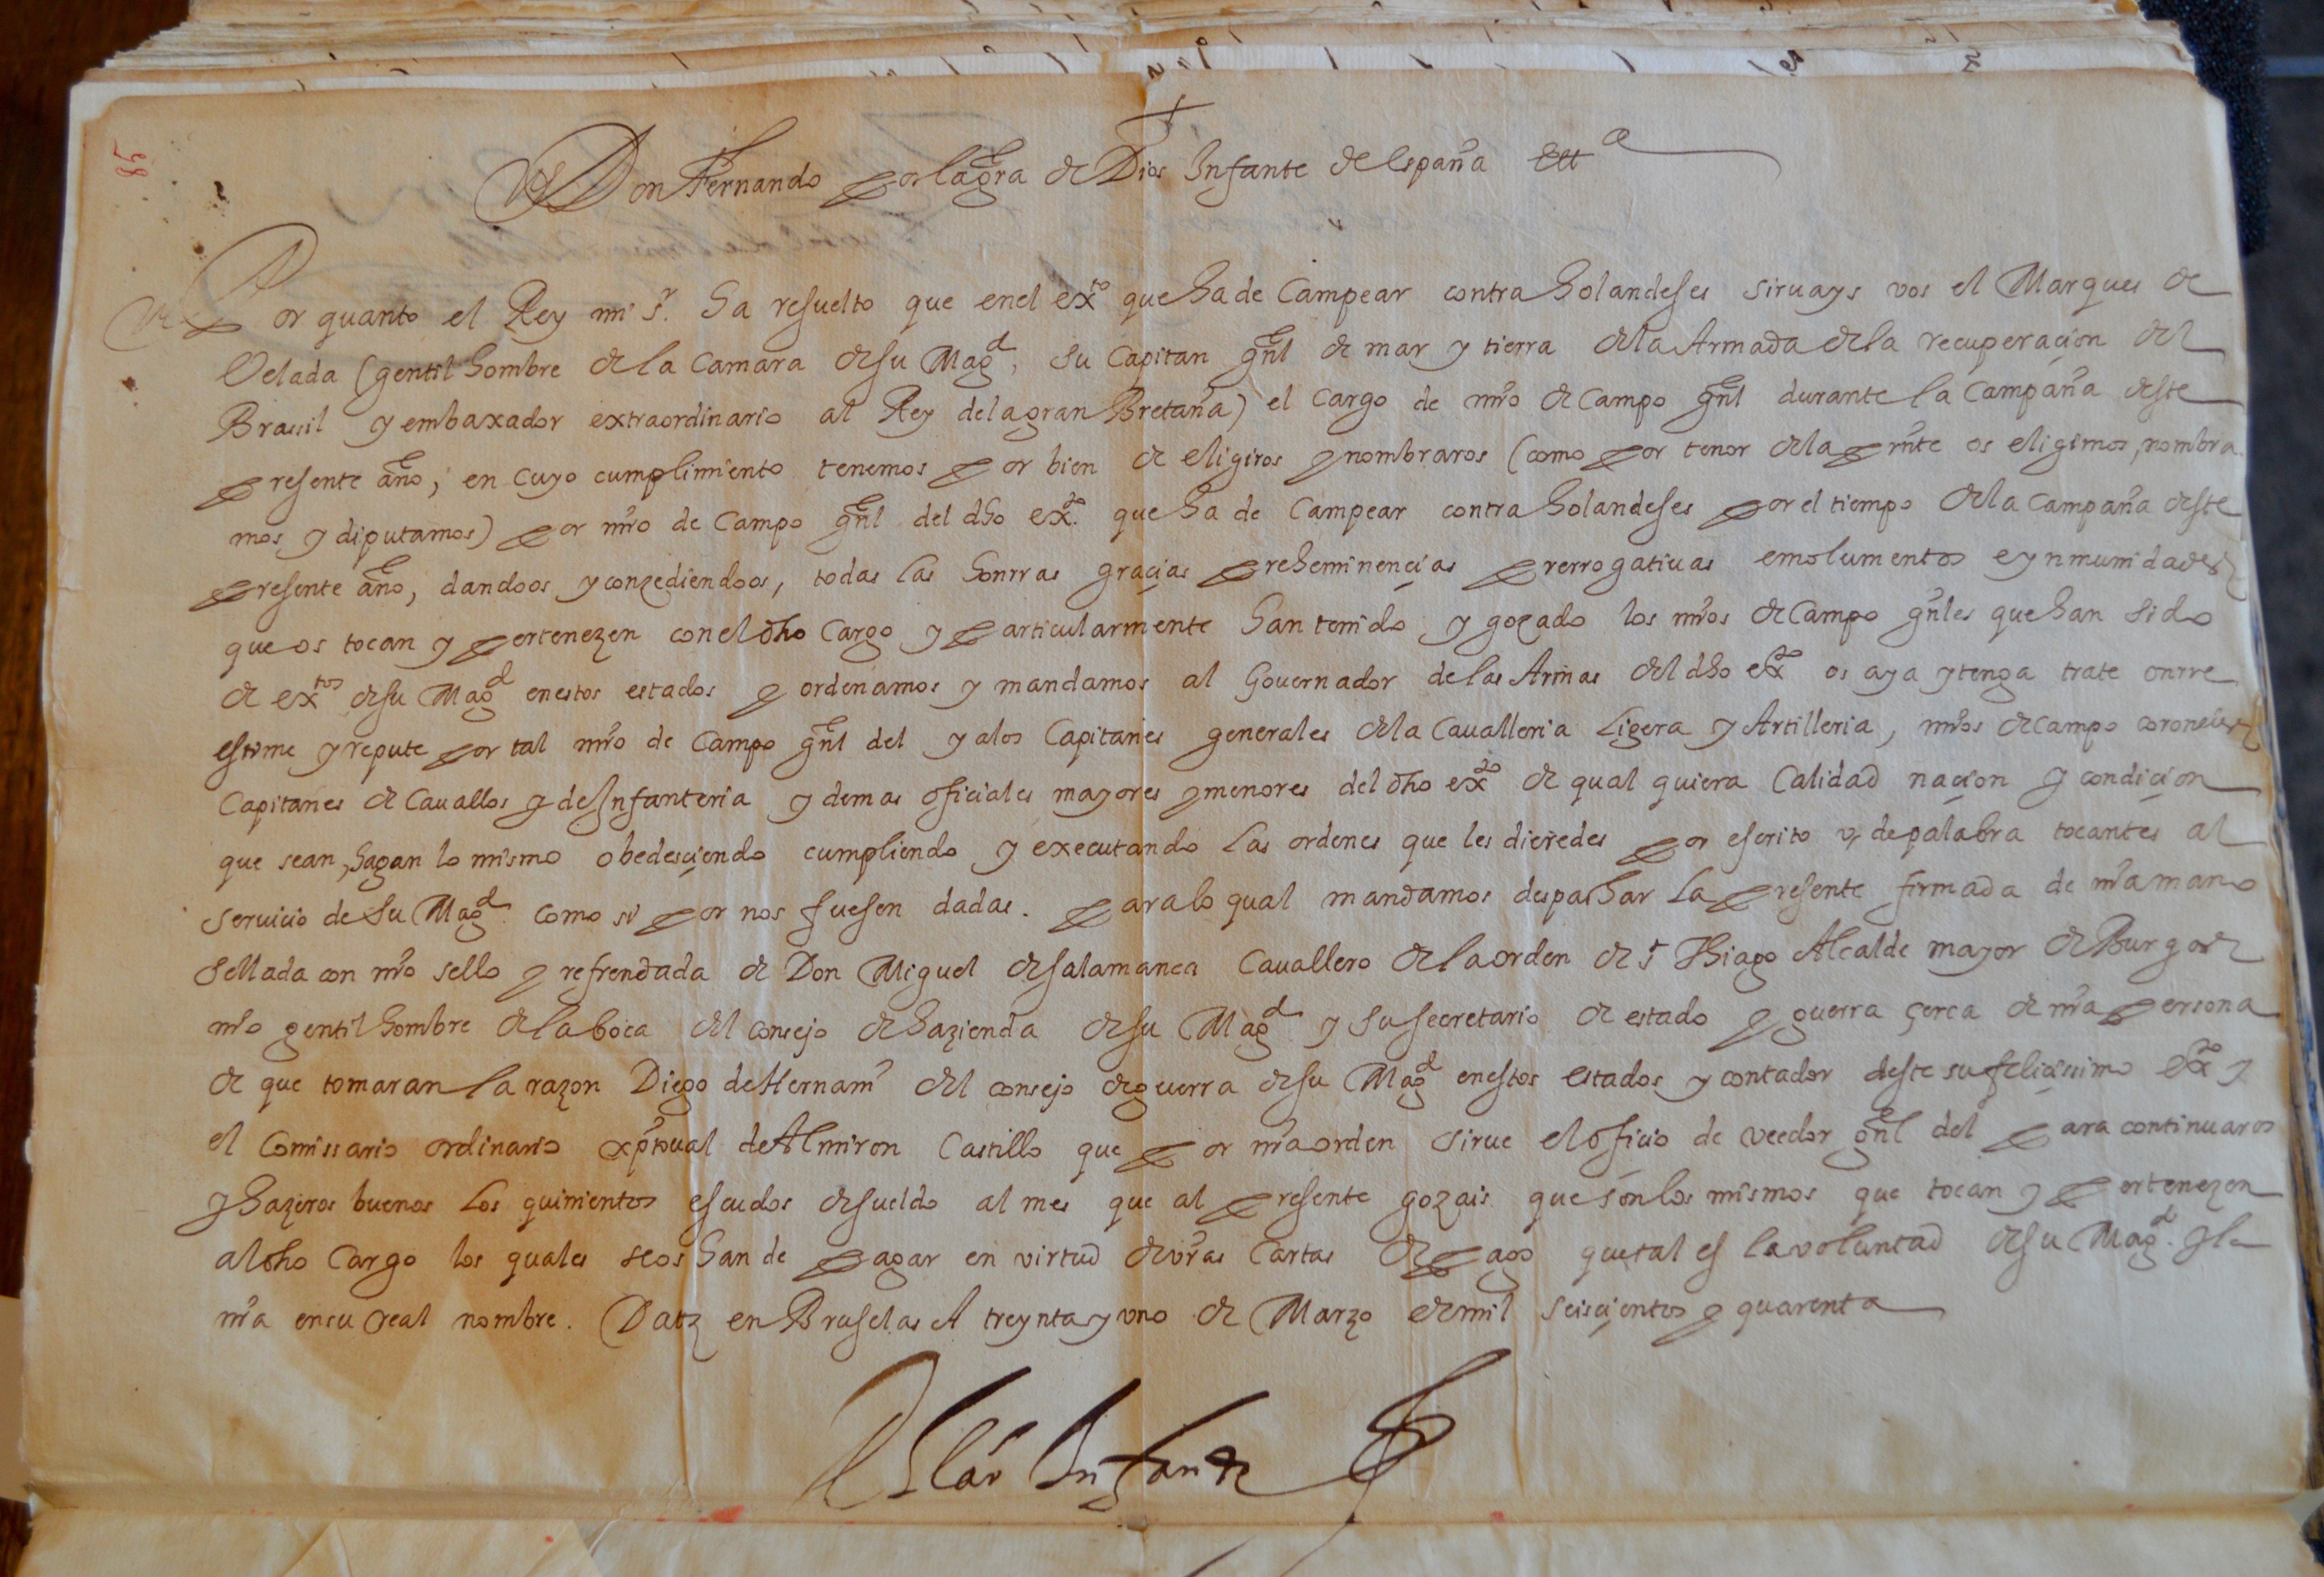 85
Don Fernando por la gra de Dios Infante de españa Ett.ª
Por quanto el Rey mi s.r ha resuelto que enel ex.to que ha de Campear contra holandeses siruays vos el Marques de
Velada (gentil hombre de la Camara de su Mag.d, su Capitan gñl de mar y tierra dela Armada dela recuperaçion del
Brassil y embaxador extraordinario al Rey dela gran Bretaña) el Cargo de mr̃o de Campo gñl durante la Campaña deste
presente año; en cuyo cumplimiento tenemos por bien de eligiros y nombraros (como por tenor dela prñte os eligimos, nombra-
mos y diputamos) por mr̃o de Campo gñl del dho ex.to que ha de Campear contra holandeses por el tiempo dela Campaña deste
presente año, dandoos y conzediendoos, todas las honrras graçias preheminençias prerrogatiuas emolumentos e ynmunidades
que os tocan y pertenezen con el dho Cargo y particularmente han tenido y gozado los mr̃os de Campo gñles que han sido
de ex.tos de su Mag.d en estos estados y ordenamos y mandamos al Gouernador de las Armas del dho ex.to os aya y tenga trate onrre
estime y repute por tal mr̃o de Campo gñl del y alos Capitanes generales dela Caualleria Ligera y Artilleria, mr̃os de Campo coroneles
Capitanes de Cauallos y de Infanteria y demas ofiçiales mayores y menores del dho ex.to de qual quiera Calidad naçion y condiçion
que sean, hagan lo mismo obedesçiendo cumpliendo y executando las ordenes que les dieredes por escrito y de palabra tocantes al
seruicio de su Mag.d como si por nos fuesen dadas. para lo qual mandamos despachar la presente firmada de nr̃a mano
sellada con nr̃o sello y refrendada de Don Miguel de salamanca Cauallero dela orden de s.t Thiago Alcalde mayor de Burgos
nr̃o gentil hombre dela boca del consejo de hazienda de su Mag.d y su secretario de estado y guerra çerca de nr̃a persona
de que tomaran la razon Diego de Hernani del consejo de guerra de su Mag.d en estos estados y contador deste su feliçissimo ex.to y
el Comissario ordinario xp̃toual de Almiron Castillo que por nr̃a orden sirue el ofiçio de veedor gñl del para continuaros
y hazeros buenos los quinientos escudos de sueldo al mes que al presente gozais que son los mismos que tocan y pertenezen
al dho Cargo los quales se os han de pagar en virtud de vr̃as Cartas de pago que tal es la voluntad de su Mag.d y la
nr̃a en su real nombre. Datz en Bruselas A treynta y uno de Marzo de mil seisçientos y quarenta
El Car Infante